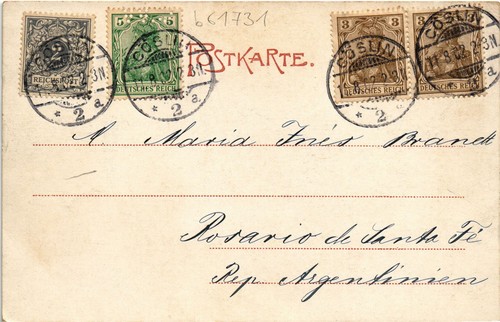 bc1731
CÖSLIN
CÖSLIN
CÖSLIN
CÖSLIN
5 5
3 3
3 3
2
REICHSPOST
DEUTSCHES REICH
DEUTSCHES REICH
DEUTSCHES REICH
POSTKARTE.
* 2 a
* 2 a
* 2 a
* 2 a
A. Maria Inés Brandt
Rosario de Santa Fé
Rep Argentinien